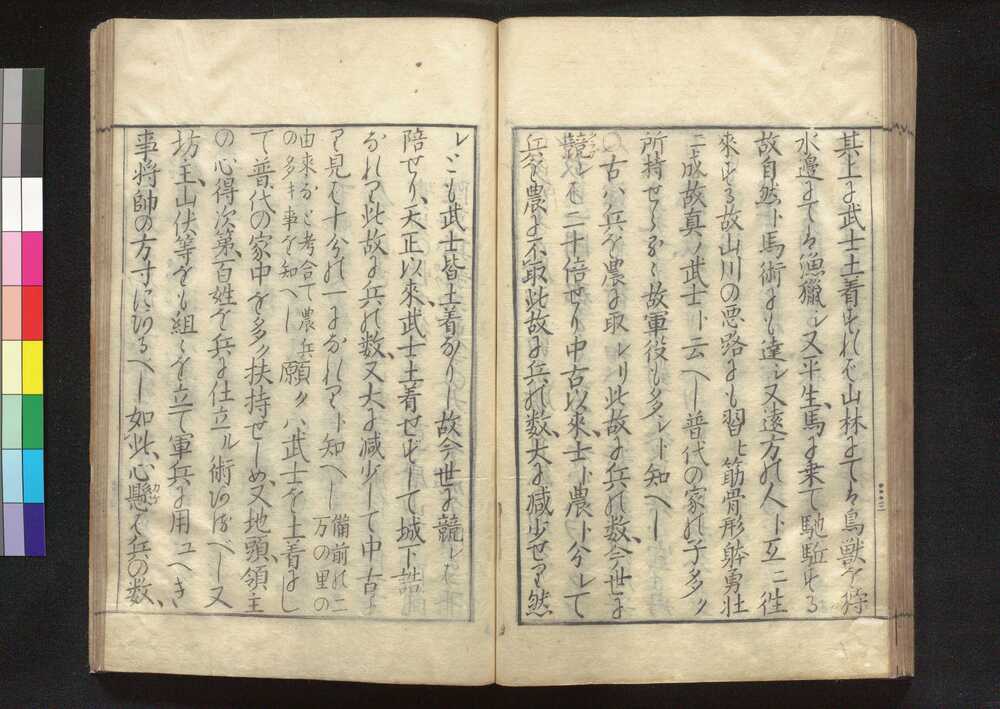 其上に武士土着すれば山林にては鳥獣を狩
水邊にては漁獵し又平生馬に乗て馳駈する
故自然ト馬術にも達し又遠方の人ト互ニ徃
來する故山川の悪路にも習ヒ筋骨形骵勇壮
ニ成故真ノ武士ト云へし普代の家の子多ク
所持せらるゝ故軍役も多シト知へし
○古ハ兵を農に取レリ此故に兵の数今世に
競レは二十倍せり中古以來士ト農ト分レて
兵を農に不取此故に兵の数大に减少せり然
レとも武士皆土着なりし故今世に競レは
陪せり天正以來武士土着せずして城下詰
なれり此故に兵の数又大に减少して中古に
り見は十分の一になれりト知へし 備前の二万の里の
由来など考合て農兵の多キ事を知へし 願クハ武士を土着にし
て普代の家中を多ク扶持せしめ又地頭領主
の心得次第百姓を兵に仕立ル術あるべし又
坊主山伏等をも組々を立て軍兵に用ユへき
事将帥の方寸にあるべし如此心懸は兵の数